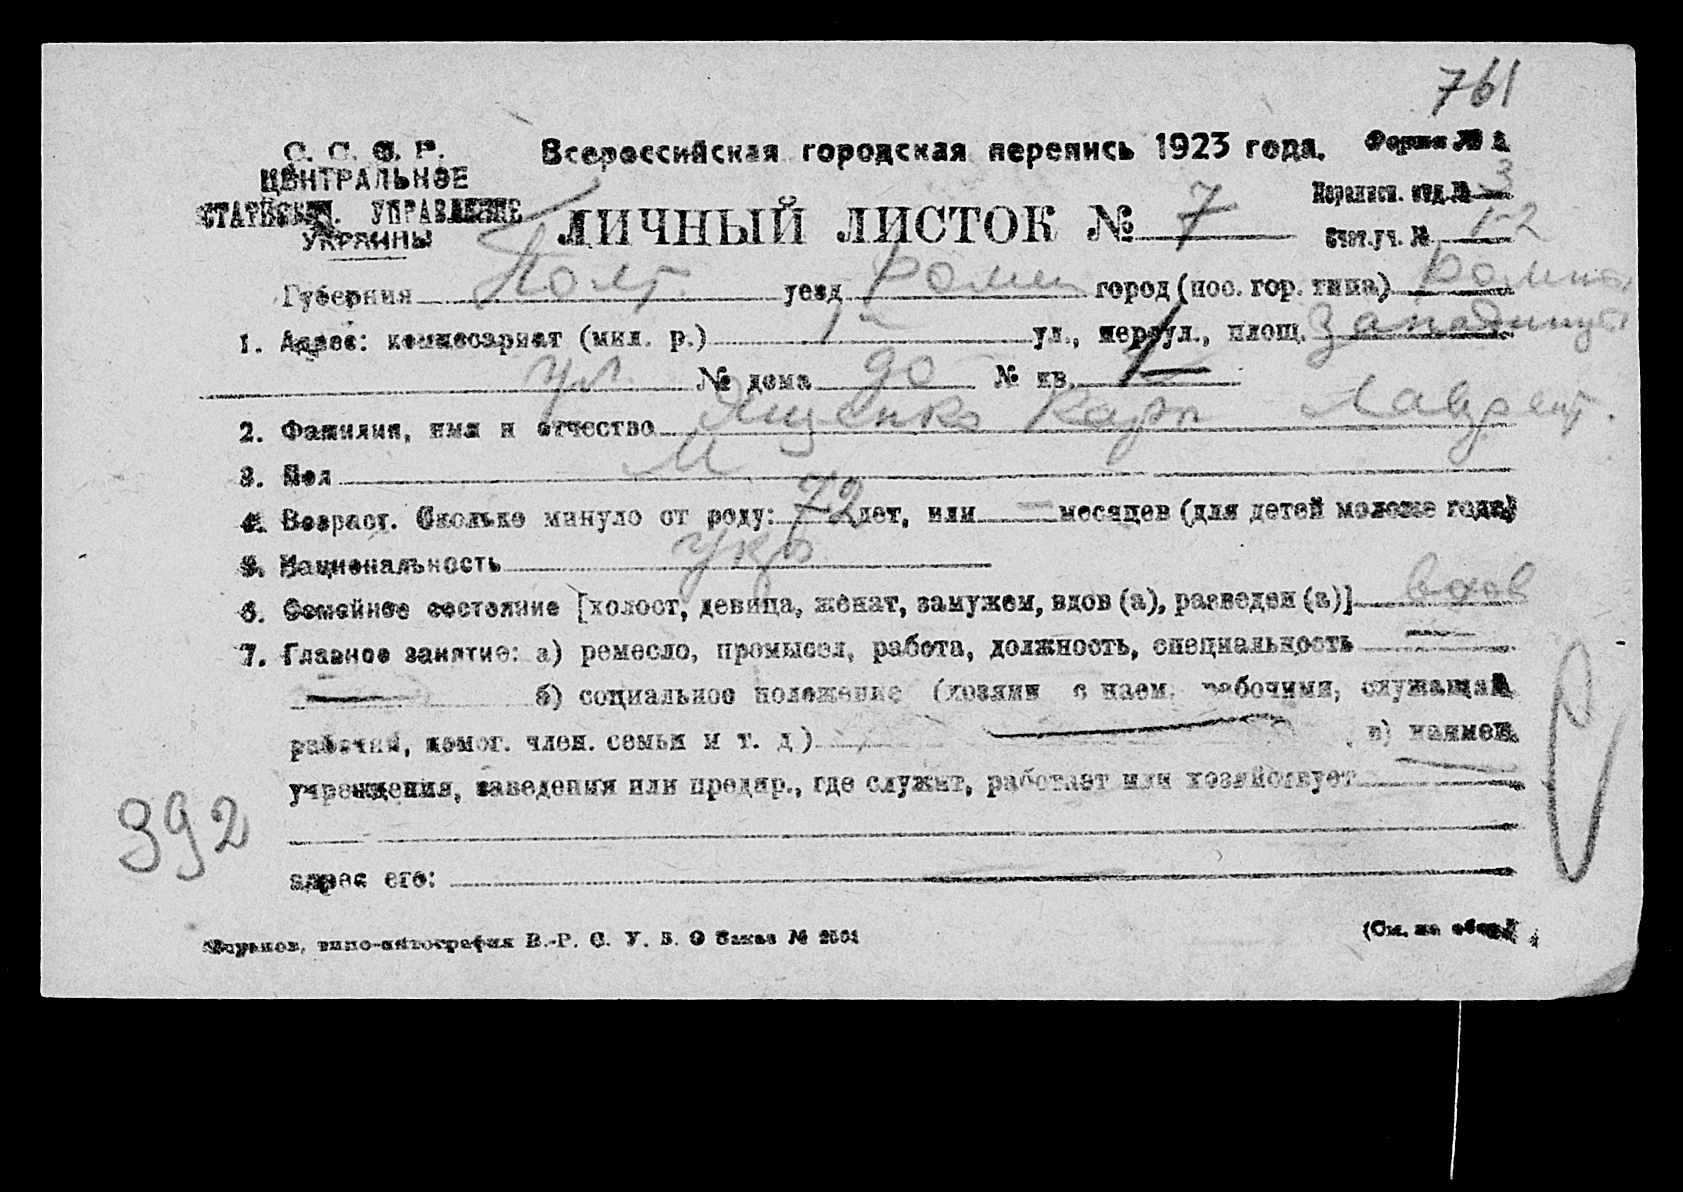 761
С. С. С. Р.
ЦЕНТРАЛЬНОЕ
СТАТИСТИЧ. УПРАВЛЕНИЕ
УКРАИНЫ
Всероссийская городская перепись 1923 года.
Форма № 2.
ЛИЧНЫЙ ЛИСТОК № 7
Переписн. отд. № 3
Счет.уч. № 1-2
Губерния Полт. уезд Ромен город (пос. гор. типа) Ромны
1. Адрес: комиссариат (мил. р.) 1 ул., переул., площ.
ул. № дома 90 № кв. 1
2. Фамилия, имя и отчество Ященко Карп Лаврент.
3. Пол М
4. Возраст. Сколько минуло от роду: 72 лет, или — месяцев (для детей моложе года)
5. Национальность укр
6. Семейное состояние [холост, девица, женат, замужем, вдов (а), разведен (а)] вдов
7. Главное занятие: а) ремесло, промысел, работа, должность, специальность —
— б) социальное положение (хозяин с наем. рабочими, служащий,
рабочий, помог. член. семьи и т. д.) — в) наимен.
учреждения, заведения или предпр., где служит, работает или хозяйствует —
392
адрес его: —
Харьков, типо-литография В.-Р. С. У. В. О Заказ № 2501
(См. на обор.)